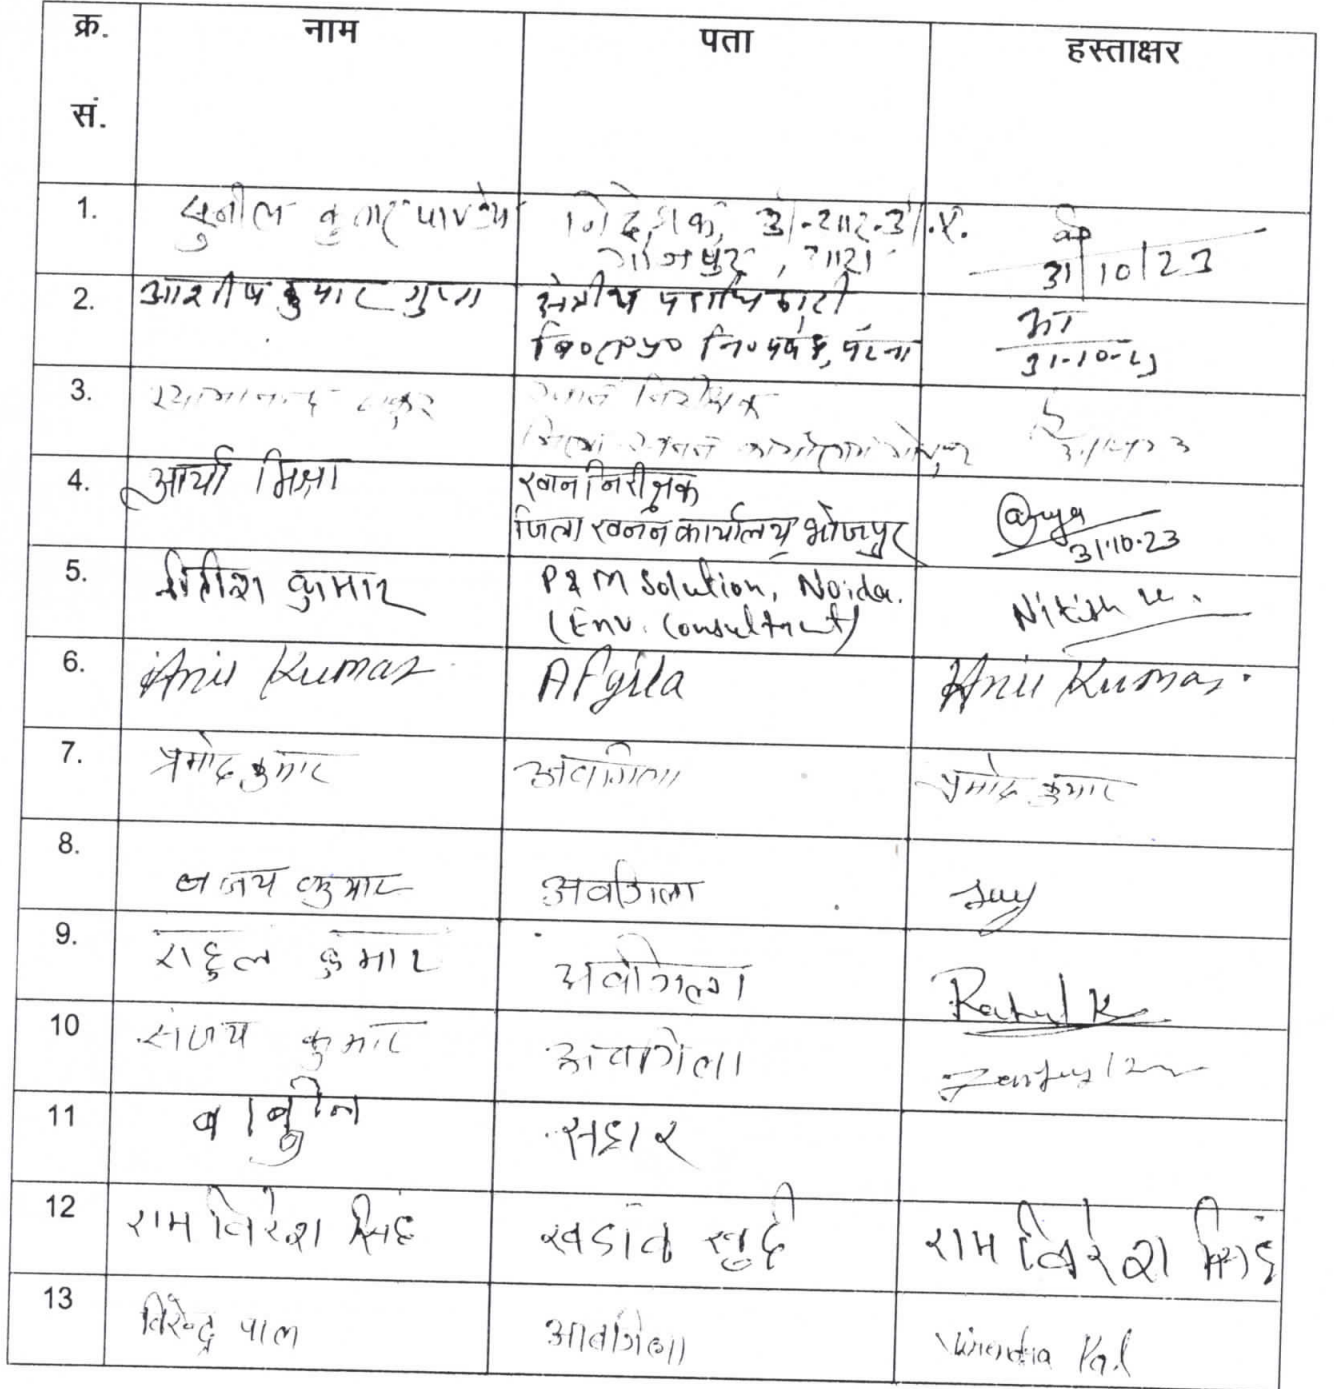 क्र. सं. नाम पता हस्ताक्षर
1. सुनील कुमार पाण्डेय निदेशक, डी.आर.डी.ए.
भोजपुर, आरा
31/10/23
2. आशीष कुमार गुप्ता क्षेत्रीय पदाधिकारी
31-10-23
3. ठाकुर खान निरीक्षक
जिला खनन कार्यालय भोजपुर
4. आर्या मिश्रा खान निरीक्षक
जिला खनन कार्यालय भोजपुर
@arya
31.10.23
5. नीतीश कुमार P&M Solution, Noida.
(Env. Consultant)
Nitish
6. Anil Kumar Afgila Anil Kumar.
7. प्रमोद कुमार अवगिला प्रमोद कुमार
8. अजय कुमार अवगिला
9. राहुल कुमार अवगिला Rahul K
10 संजय कुमार अवगिला
11 सहार
12 राम विरेश सिंह खडांव खुर्द राम विरेश सिंह
13 विरेन्द्र पाल अवगिला Virendra Pal